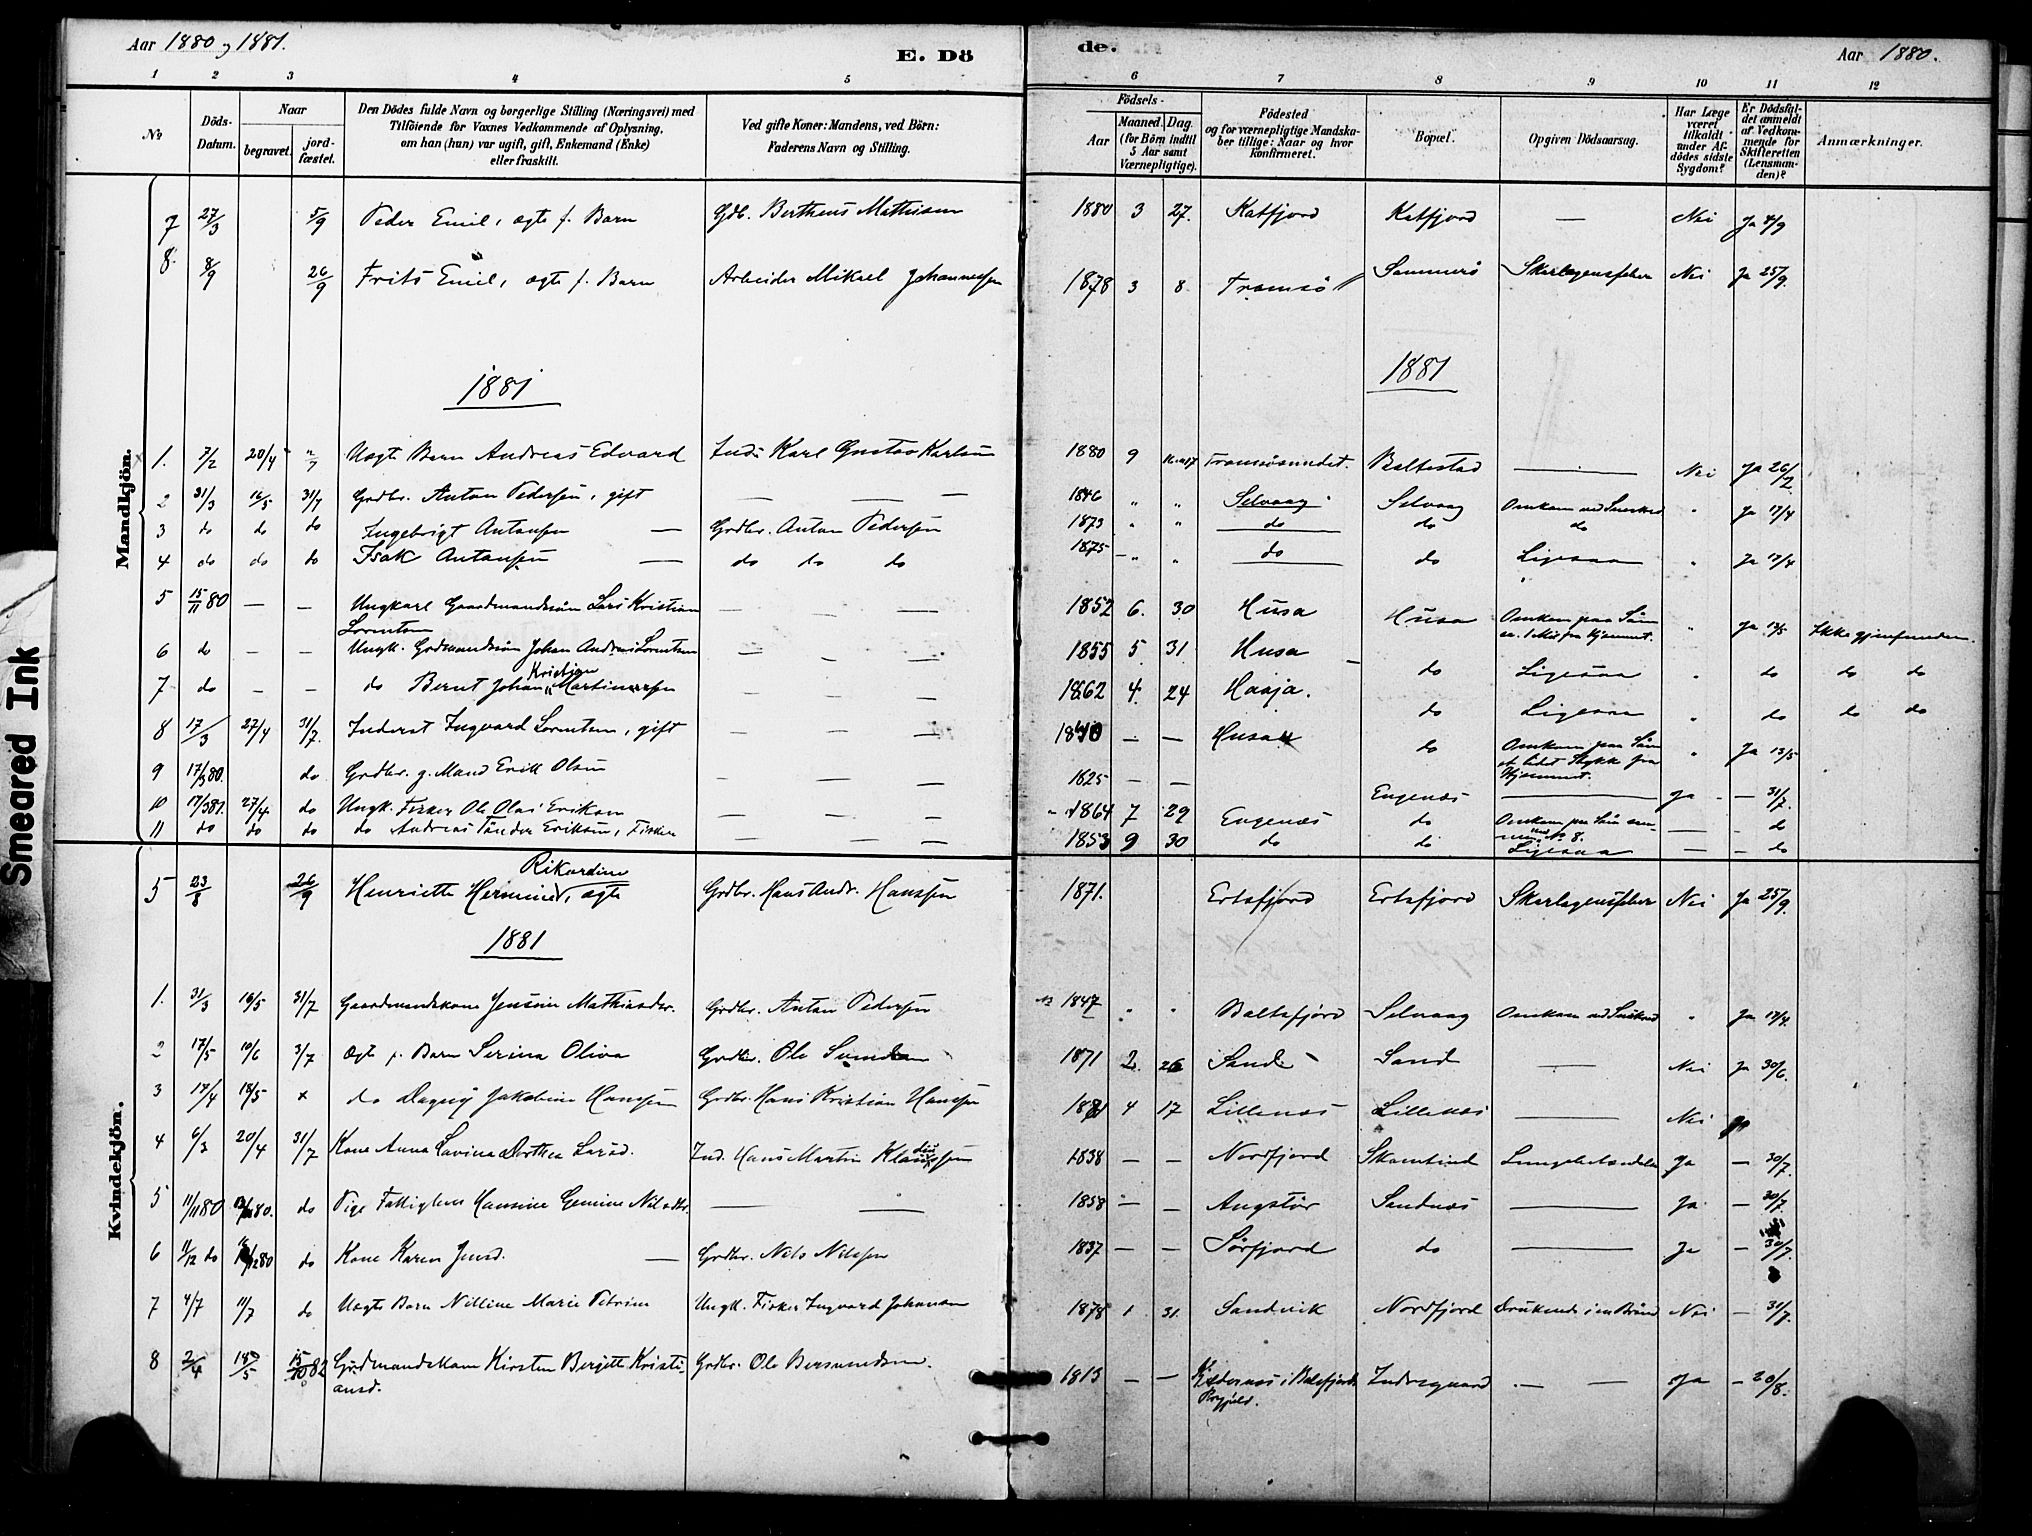 Aar 1880 og 1881.
E. Dö
de.
Aar 1880.
1 2 3 4 5 6 7 8 9 10 11 12
No
Döds-Datum.
Naar
begravet.
jord-fæstet.
Den Dödes fulde Navn og borgerlige Stilling (Næringsvei) med
Tilföiende for Voxnes Vedkommende af Oplysning,
om han (hun) var ugift, gift, Enkemand (Enke)
eller fraskilt.
Ved gifte Koner: Mandens, ved Börn:
Faderens Navn og Stilling.
Födsels-
Aar
Maaned. Dag.
(for Börn indtil
5 Aar samt
Værnepligtige).
Födested
og for værnepligtige Mandska-
ber tillige: Naar og hvor
konfirmeret.
Bopæl.
Opgiven Dödsaarsag.
Har Læge
været
tilkaldt
under Af-
dödes sidste
Sygdom?
Er Dödsfal-
det anmeldt
af Vedkom-
mende for
Skifteretten
(Lensman-
den)?
Anmærkninger.
Mandkjön.
7 27/3 5/9 Peder Emil, ægte f. Barn Gdb. Bertheus Mathisen 1880 3 27. Katfjord Katfjord — Nei Ja 4/9
8. 8/9 26/9 Frits Emil, ægte f. Barn Arbeider Mikael Johannessen 1878 3 8 Tromsö Sommerö Skarlagensfeber Nei Ja 25/9.
1881 1881
1. 7/2 20/4 Uægte Barn Andreas Edvard Inds Karl Gustav Karlsen 1880 9 Tromsösundet. Baltestad — Nei Ja 26/2
2 31/3 16/5 31/7 Grdbr. Anton Pedersen, gift — — — 1846 " " Selvaag Selvaag Omkom ved Sneskred " Ja 17/4
3 do do do Ingebrigt Antonsen — Grdbr. Anton Pedersen 1873 " " do do do
4 do do do Isak Antonsen — do do do 1875 — " " do do Ligesaa " Ja 17/4
5 15/11 80 — — Ungkarl Gaardmandssön Lars Kristian — — 1852 6. 30 Husa Husa Omkom paa Söen " Ja 13/5 Ikke gjenfunden.
Lorentsen
6 do — — Ungk. Grdmandssön Johan Andreas Lorentsen — — 1855 5 31 Husa — do Ligesaa " do do do
7 do — — do Bernt Johan Kristian Martinussen — — 1862 4. 24 Haaja. do Ligesaa " do do do
8 17/3 27/4 31/7. Inderst Ingvard Lorentsen, gift — — 1840 — — Husa do Omkom paa Söen " Ja 13/5
et lidet Stykke fra
Hjemmet.
9 17/3 80. do Grdbr. g. Mand Erik Olsen — — 1825 — — Engenæs — Ja - — 31/7.
10 17/3 81. 27/4 do Ungk. Fisker Ole Olai Eriksen — — — 1864 7 29 Engenæs do Omkom paa Söen — - do
11 do do do do Andreas Tönder Eriksen, Fisker — — — 1853 9 30 do do Ligesaa — — do
Kvindekjön.
5 23/8 26/9 Henriette Hermine Rikardine, ægte Grdbr. Hans Andr. Hanssen 1871. Ertefjord Ertefjord Skarlagensfeber Nei Ja 25/9.
1881
1. 31/3 16/5 31/7 Gaardmandskone Jensine Mathiasdtr. Grdbr. Anton Pedersen 1847 " " Baltsfjord Selvaag Omkom ved Sneskred " Ja 17/4.
2 17/5 10/6 3/7 Ægte f. Barn Serina Oliva Grdbr. Ole 1871 2. 26 Sand Sand — Nei Ja 30/6.
3 17/4 18/5 × do Dagny Jakobine Hanssen Grdbr. Hans Kristian Hanssen 1881 4 17 Lillenæs Lillenæs — Nei Ja
4 6/3 20/4 31/7 Kone Anna Lovina Dorthea Larsd. Ind. Hans Martin Klaudiussen 1838 — — Nordfjord Skamtind Lungebetændelse Ja — 30/7.
5 11/11 80 80. do Pige Fattiglem Hansine Gemine Nilsdtr. — — 1858 — — Angstör Sandnæs — Ja — 30/7.
6 11/12 do 80 do Kone Karen Jensd. — Grdbr. Nils Nilssen 1837 — — Sörfjord do — Ja — 30/7.
7 4/7 11/7 do Uægte Barn Nilline Marie Petrine Ungk. Fisker Ingvard Johansen 1878 1 31. Sandvik Nordfjord Druknede i en Brönd Nei — 31/7
8 2/4 18/5 15/10 82 Grdmandskone Kirsten Bergitte Kristi- Grdbr. Ole Bersvendsen. 1813 — — i Balsfjord Indregaard — — Ja — 20/8.
ansd. Prgjeld.
Smeared Ink